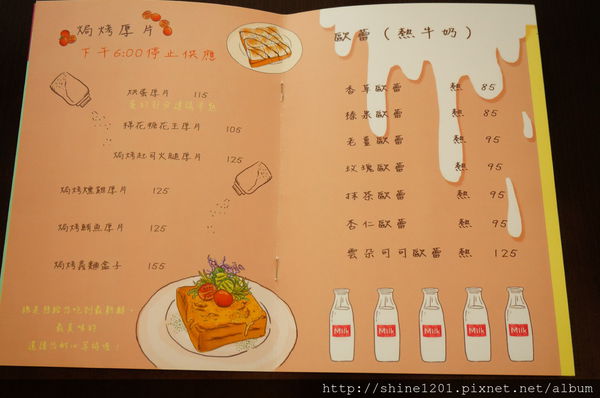 焗烤厚片
下午6:00停止供應
烘蛋厚片 115
棉花糖花生厚片 105
焗烤起司火腿厚片 125
焗烤燻雞厚片 125
焗烤鮪魚厚片 125
焗烤義麵盒子 155
歐蕾(熱牛奶)
香草歐蕾 熱 85
榛果歐蕾 熱 85
老薑歐蕾 熱 95
玫瑰歐蕾 熱 95
抹茶歐蕾 熱 95
杏仁歐蕾 熱 95
雲朵可可歐蕾 熱 125
Milk
Milk
Milk
Milk
Milk
http://shine1201.pixnet.net/album